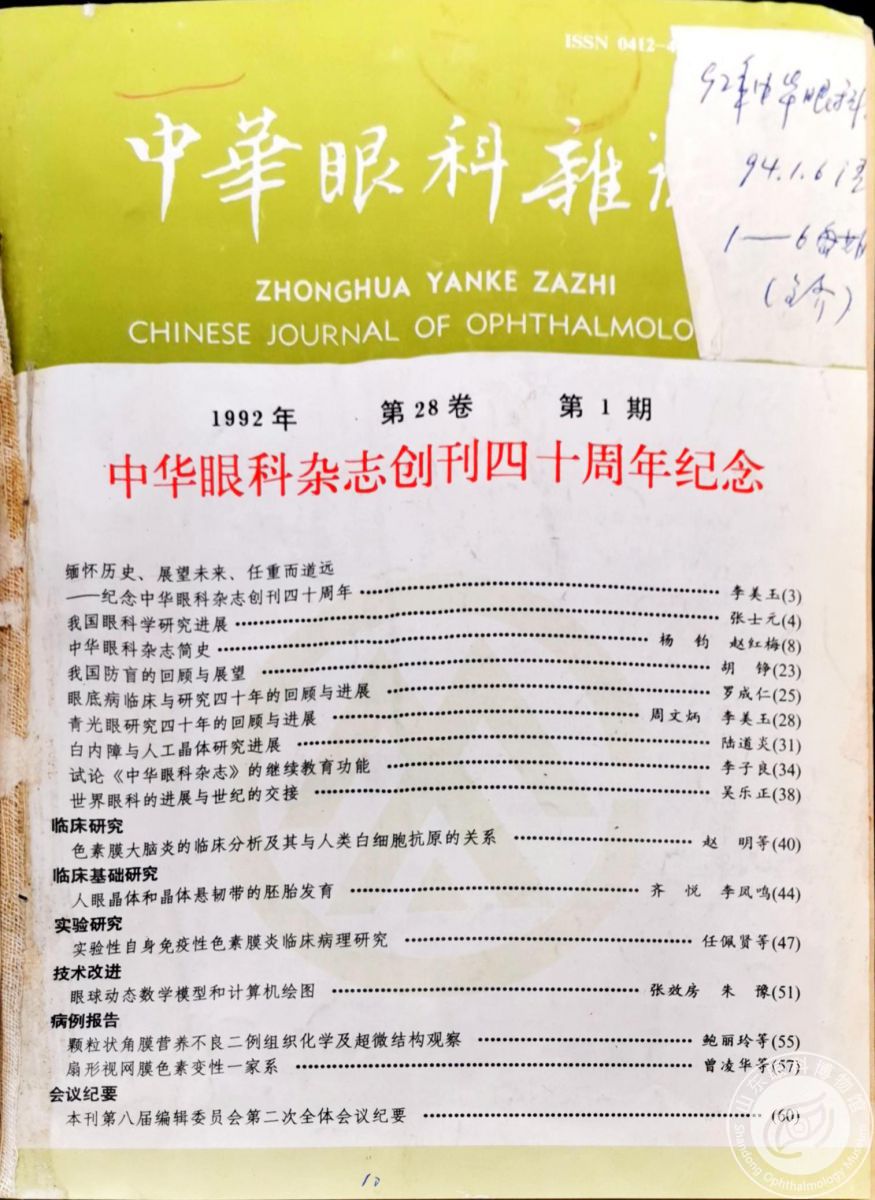 ISSN 0412-4
中華眼科雜
ZHONGHUA YANKE ZAZHI
CHINESE JOURNAL OF OPHTHALMOLO
92年中华眼科
94.1.6
1—6
1992年 第28卷 第1期
中华眼科杂志创刊四十周年纪念
缅怀历史、展望未来、任重而道远
——纪念中华眼科杂志创刊四十周年 李美玉(3)
我国眼科学研究进展 张士元(4)
中华眼科杂志简史 杨 钧 赵红梅(8)
我国防盲的回顾与展望 胡 铮(23)
眼底病临床与研究四十年的回顾与进展 罗成仁(25)
青光眼研究四十年的回顾与进展 周文炳 李美玉(28)
白内障与人工晶体研究进展 陆道炎(31)
试论《中华眼科杂志》的继续教育功能 李子良(34)
世界眼科的进展与世纪的交接 吴乐正(38)
临床研究
色素膜大脑炎的临床分析及其与人类白细胞抗原的关系 赵 明等(40)
临床基础研究
人眼晶体和晶体悬韧带的胚胎发育 齐 悦 李凤鸣(44)
实验研究
实验性自身免疫性色素膜炎临床病理研究 任佩贤等(47)
技术改进
眼球动态数学模型和计算机绘图 张效房 朱 豫(51)
病例报告
颗粒状角膜营养不良二例组织化学及超微结构观察 鲍丽玲等(55)
扇形视网膜色素变性一家系 曾凌华等(57)
会议纪要
本刊第八届编辑委员会第二次全体会议纪要 (60)
10
山东眼科博物馆
Shandong Ophthalmology Museum